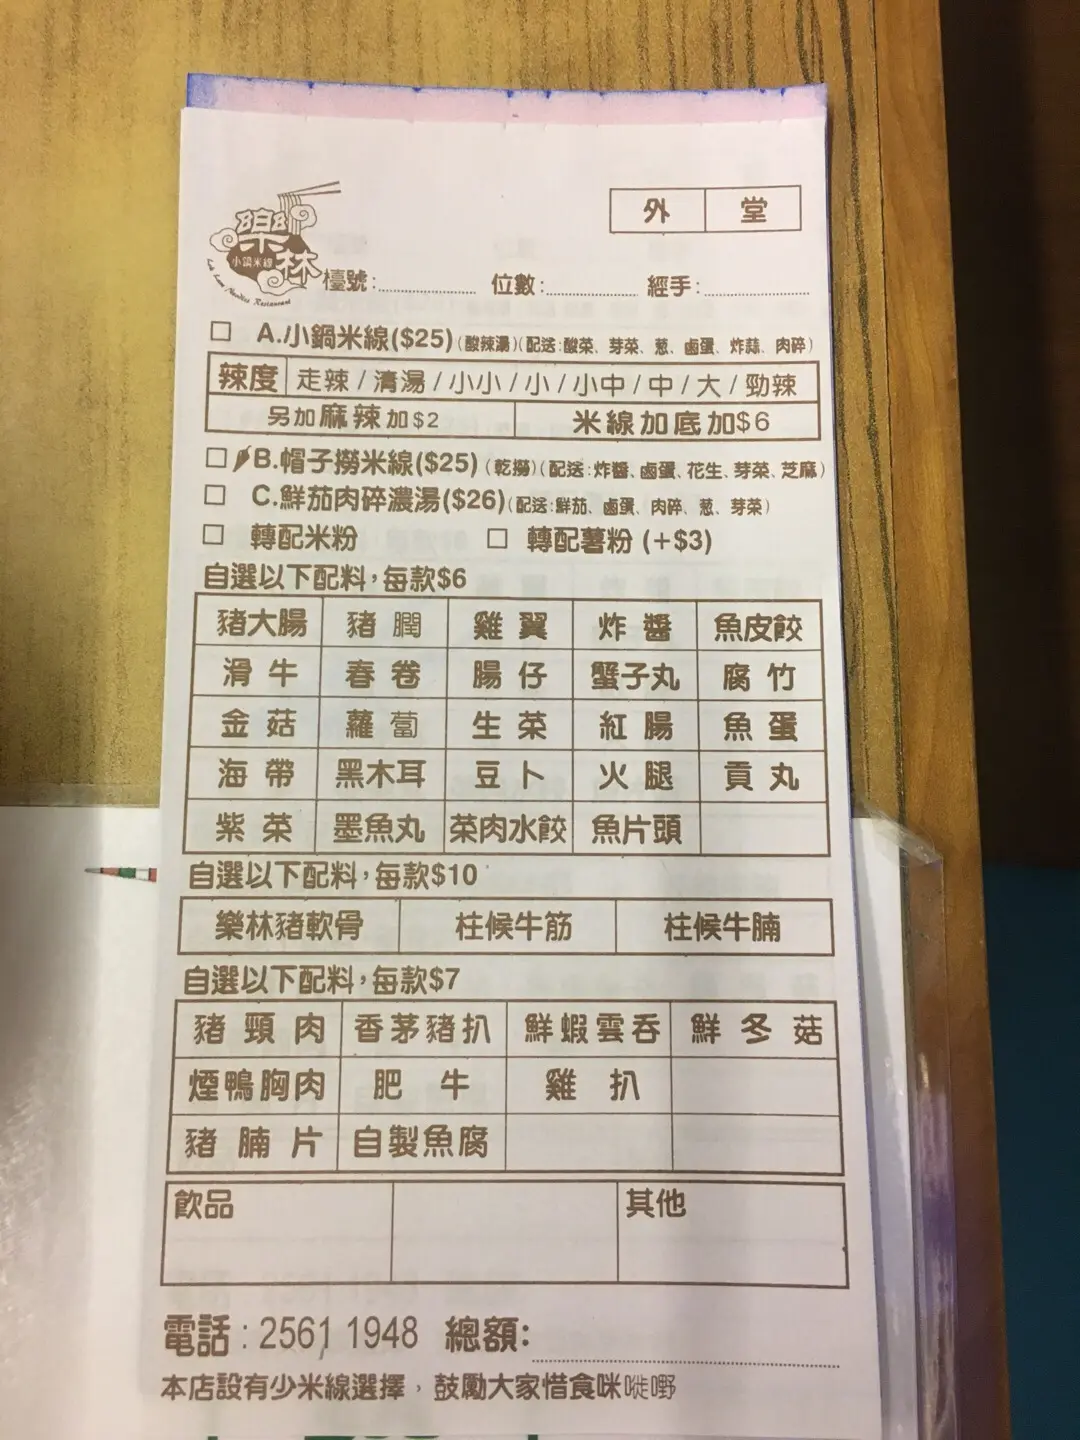 外 堂
樂林
小鍋米線
Lok Lam Noodles Restaurant
檯號: 位數: 經手:
A.小鍋米線($25)(酸辣湯)(配送:酸菜、芽菜、葱、鹵蛋、炸蒜、肉碎)
辣度 走辣 / 清湯 / 小小 / 小 / 小中 / 中 / 大 / 勁辣
另加麻辣加$2 米線加底加$6
B.帽子撈米線($25)(乾撈)(配送:炸醬、鹵蛋、花生、芽菜、芝麻)
C.鮮茄肉碎濃湯($26)(配送:鮮茄、鹵蛋、肉碎、葱、芽菜)
轉配米粉 轉配薯粉 (+$3)
自選以下配料,每款$6
豬大腸 豬膶 雞翼 炸醬 魚皮餃
滑牛 春卷 腸仔 蟹子丸 腐竹
金菇 蘿蔔 生菜 紅腸 魚蛋
海帶 黑木耳 豆卜 火腿 貢丸
紫菜 墨魚丸 菜肉水餃 魚片頭
自選以下配料,每款$10
樂林豬軟骨 柱候牛筋 柱候牛腩
自選以下配料,每款$7
豬頸肉 香茅豬扒 鮮蝦雲吞 鮮冬菇
煙鴨胸肉 肥牛 雞扒
豬腩片 自製魚腐
飲品 其他
電話:2561 1948 總額:
本店設有少米線選擇,鼓勵大家惜食咪嘥嘢